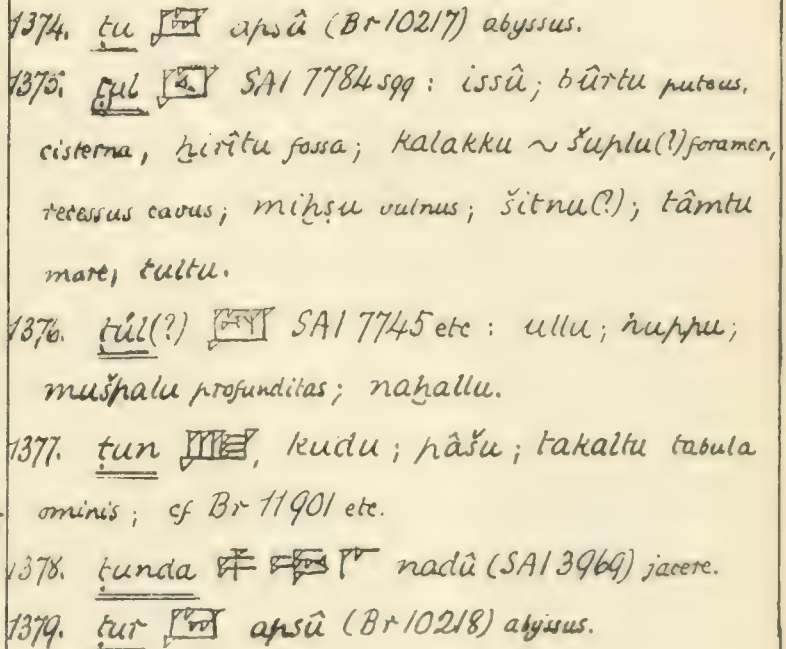 1374. ṭu apsû (Br 10217) abyssus.
1375. ṭul SAI 7784 sqq: issû; bûrtu puteus,
cisterna, ḫirîtu fossa; kalakku ~ šuplu(?) foramen,
recessus cavus; miḫṣu vulnus; šitnu(?); tâmtu
mare, tultu.
1376. ṭúl(?) SAI 7745 etc: ullu; ḫuppu;
mušpalu profunditas; naḫallu.
1377. ṭun kudu; pâšu; takaltu tabula
ominis; cf Br 11901 etc.
1378. ṭunda nadû (SAI 3969) jacere.
1379. ṭur apsû (Br 10218) abyssus.